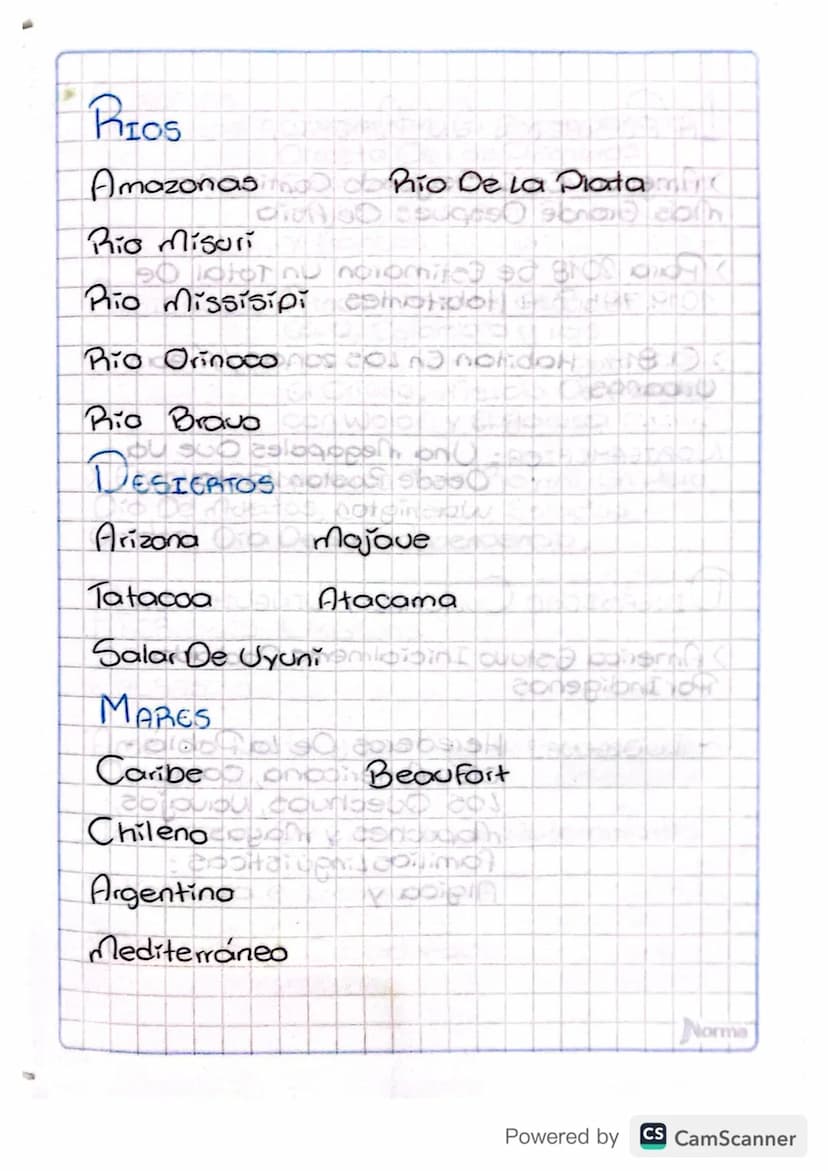 RIOS
Amazonas Río De La Plata
Río Misuri
Río Missisipi
Río Orinoco
Río Bravo
DESIERTOS
Arizona Mojave
Tatacoa Atacama
Salar De Uyuni
MARES
Caribe Beaufort
Chileno
Argentino
Mediterráneo
Norma
Powered by CS CamScanner